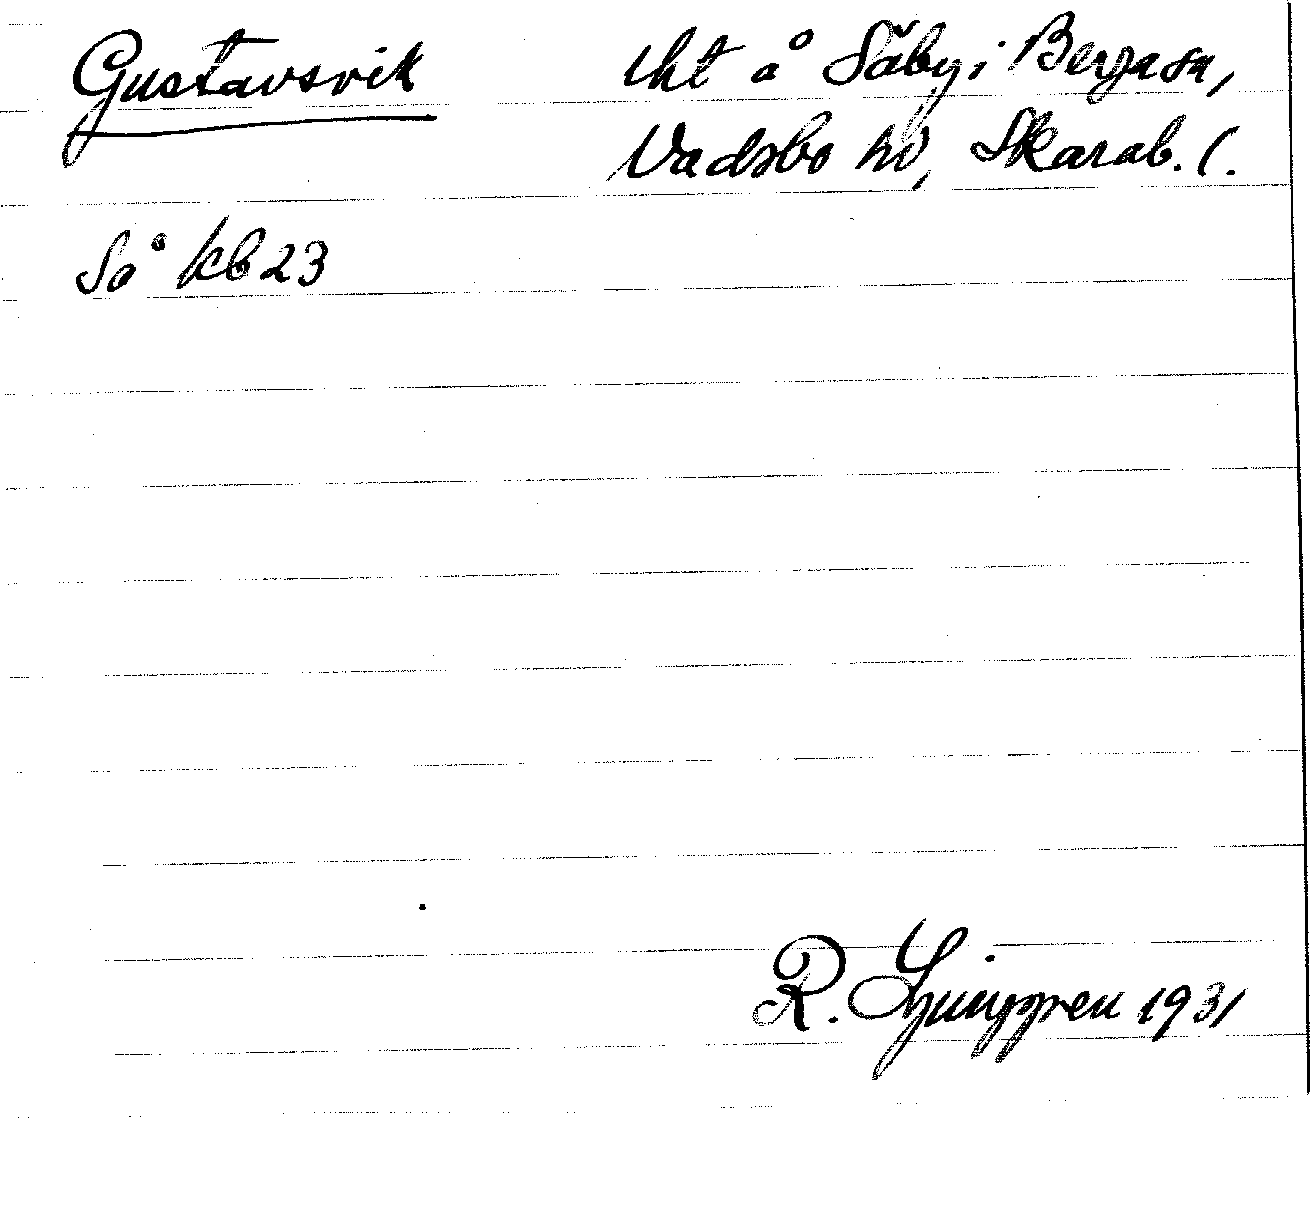 Gustavsvik
lht å Säby i Berga sn,
Vadsbo hd, Skarab. l.
Så kb 23
R. Ljunggren 1931